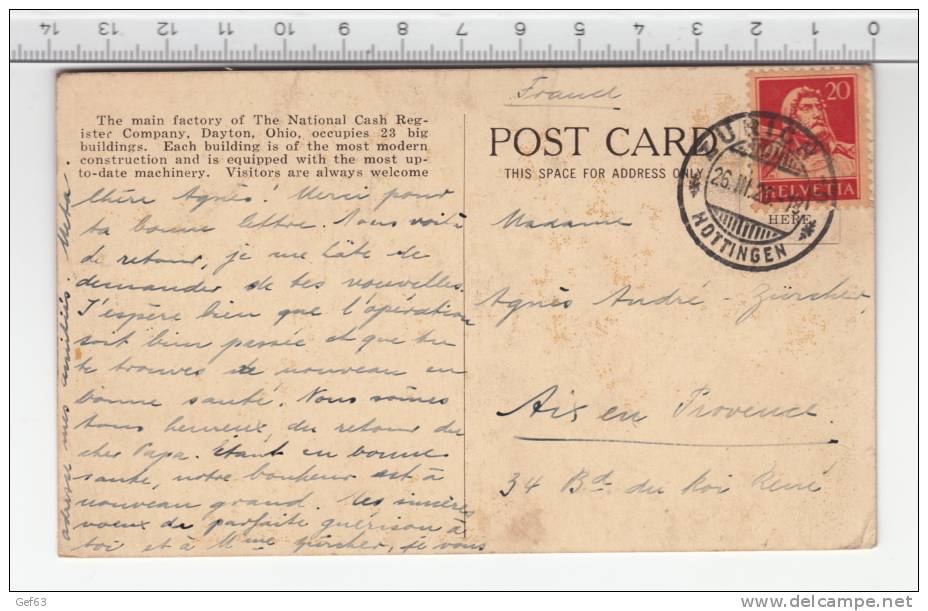 14 13 12 11 10 9 8 7 6 5 4 3 2 1 0
The main factory of The National Cash Reg-
ister Company, Dayton, Ohio, occupies 23 big
buildings. Each building is of the most modern
construction and is equipped with the most up-
to-date machinery. Visitors are always welcome
Chère Agnès! Merci pour
ta bonne lettre. Nous voilà
de retour, je me hâte de
demander de tes nouvelles.
J'espère bien que l'opération
soit bien passée et que tu
te trouves de nouveau en
bonne santé. Nous sommes
tous heureux du retour du
cher Papa. Etant en bonne
santé, notre bonheur est à
nouveau grand. Les sincères
voeux de parfaite guérison à
toi et à Mme Zürcher, je vous
adresse mes amitiés. Meta.
France
POST CARD
THIS SPACE FOR ADDRESS ONLY
HERE
20
HELVETIA
ZÜRICH
26.III.20
HOTTINGEN
Madame
Agnès André-Zürcher
Aix en Provence
34 Bd. du Roi René
© Gef63
www.delcampe.net